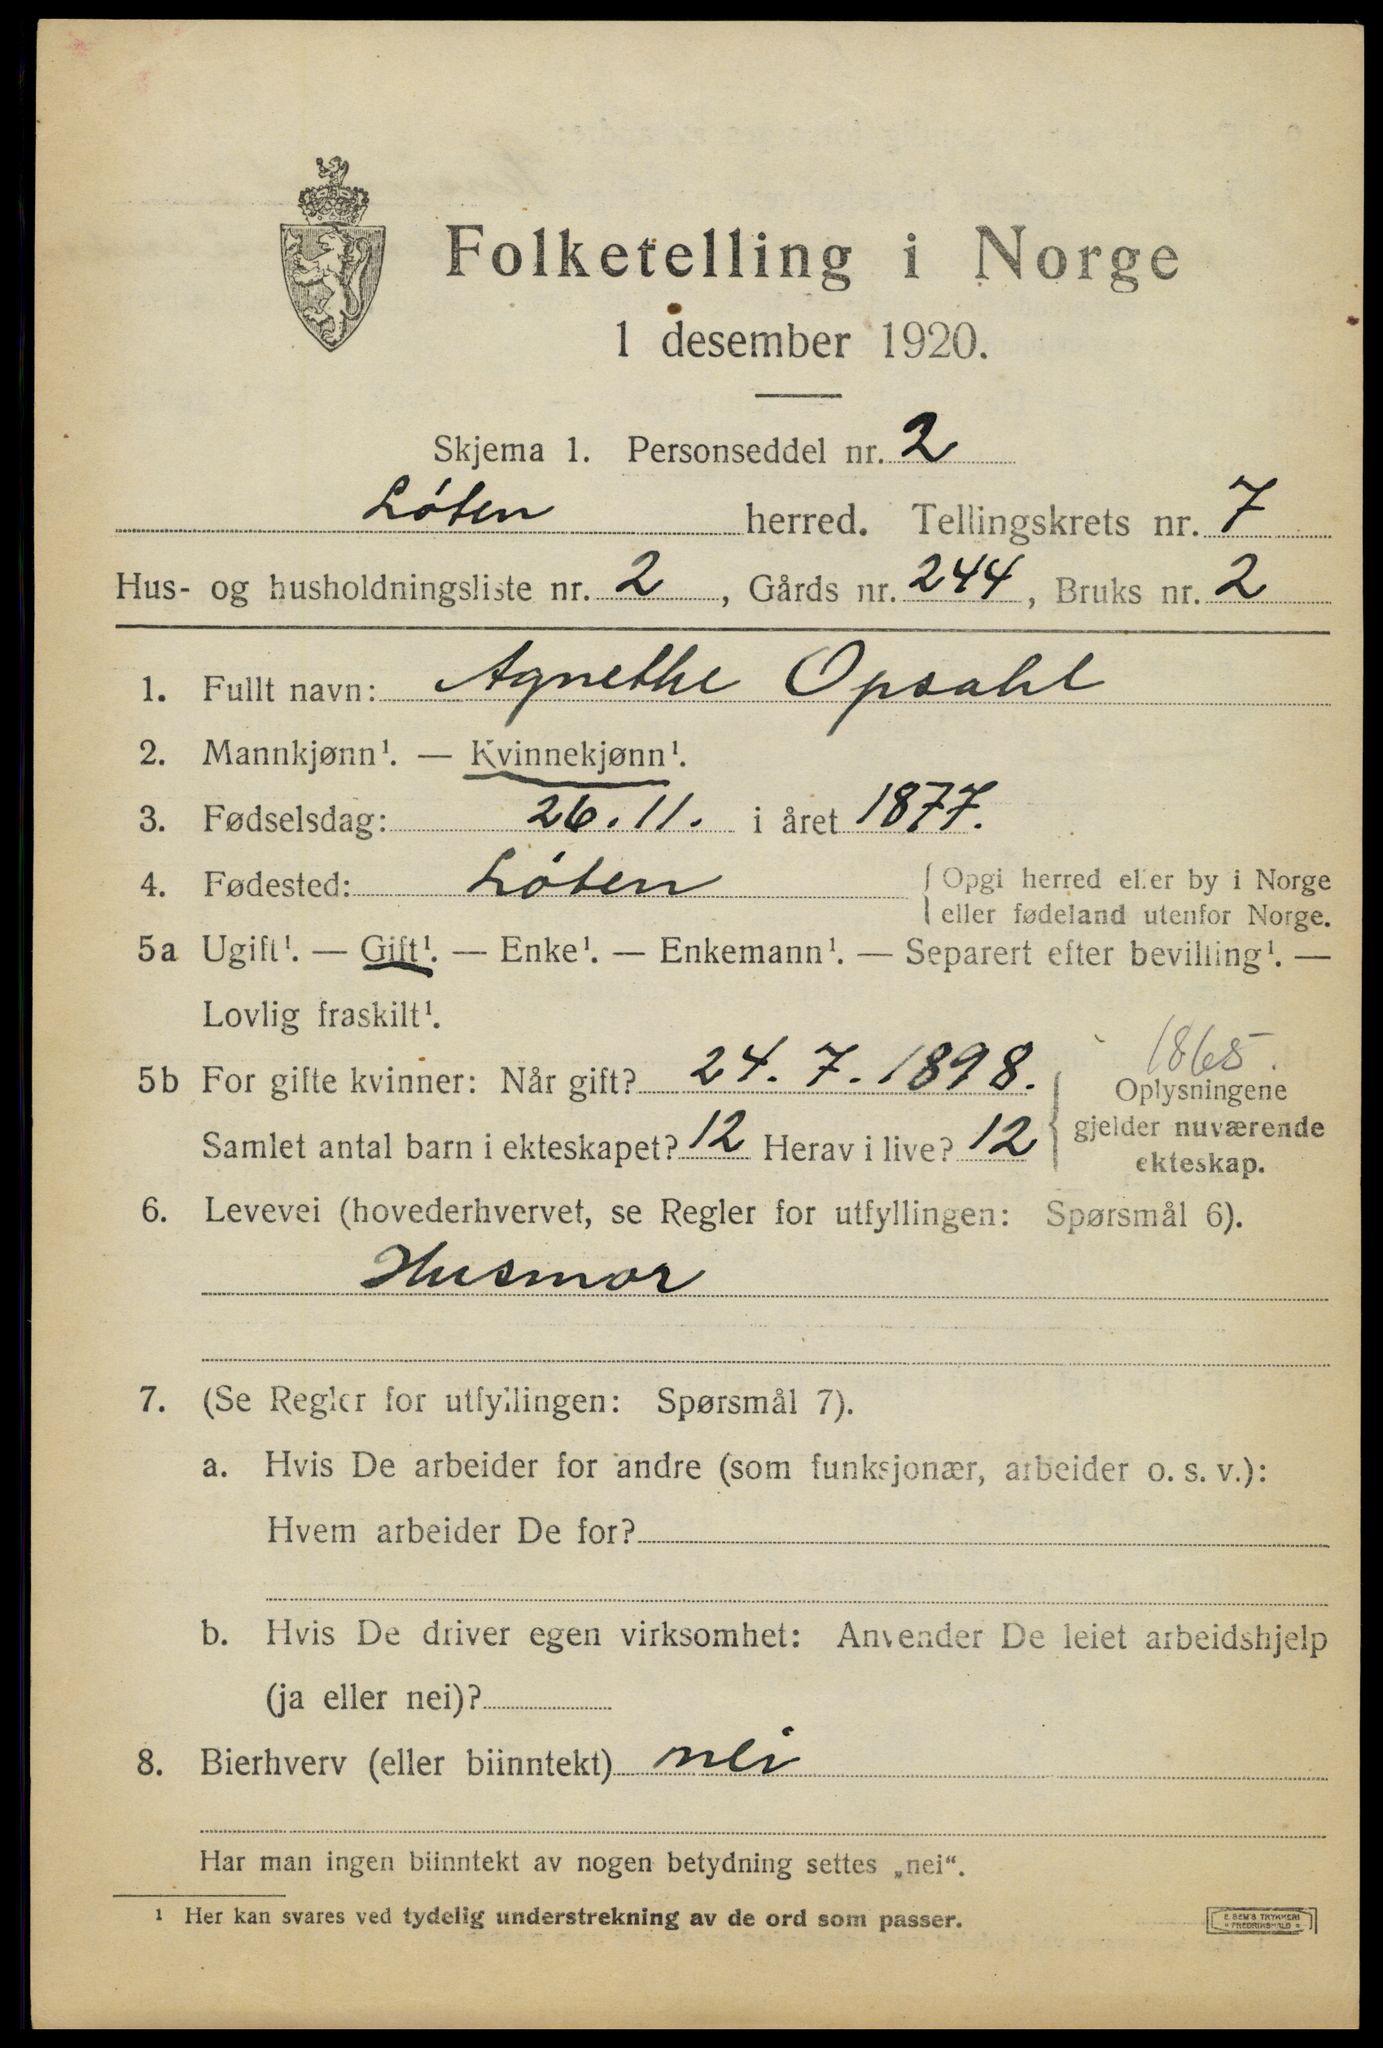 Folketelling i Norge
1 desember 1920.
Skjema 1. Personseddel nr. 2
Løten herred. Tellingskrets nr. 7
Hus- og husholdningsliste nr. 2, Gårds nr. 244, Bruks nr. 2
1. Fullt navn: Agnethe Opsahl
2. Mannkjønn¹. — Kvinnekjønn¹.
3. Fødselsdag: 26. 11. i året 1877.
4. Fødested: Løten { Opgi herred eller by i Norge
eller fødeland utenfor Norge.
5a Ugift¹. — Gift¹. — Enke¹. — Enkemann¹. — Separert efter bevilling¹. —
Lovlig fraskilt¹.
1865.
5b For gifte kvinner: Når gift? 24. 7. 1898. { Oplysningene
gjelder nuværende
Samlet antal barn i ekteskapet? 12 Herav i live? 12 ekteskap.
6. Levevei (hovederhvervet, se Regler for utfyllingen: Spørsmål 6).
Husmor
7. (Se Regler for utfyllingen: Spørsmål 7).
a. Hvis De arbeider for andre (som funksjonær, arbeider o. s. v.):
Hvem arbeider De for?
b. Hvis De driver egen virksomhet: Anvender De leiet arbeidshjelp
(ja eller nei)?
8. Bierhverv (eller biinntekt) nei
Har man ingen biinntekt av nogen betydning settes „nei“.
¹ Her kan svares ved tydelig understrekning av de ord som passer.
E. SEM'S TRYKKERI
* FREDRIKSHALD *